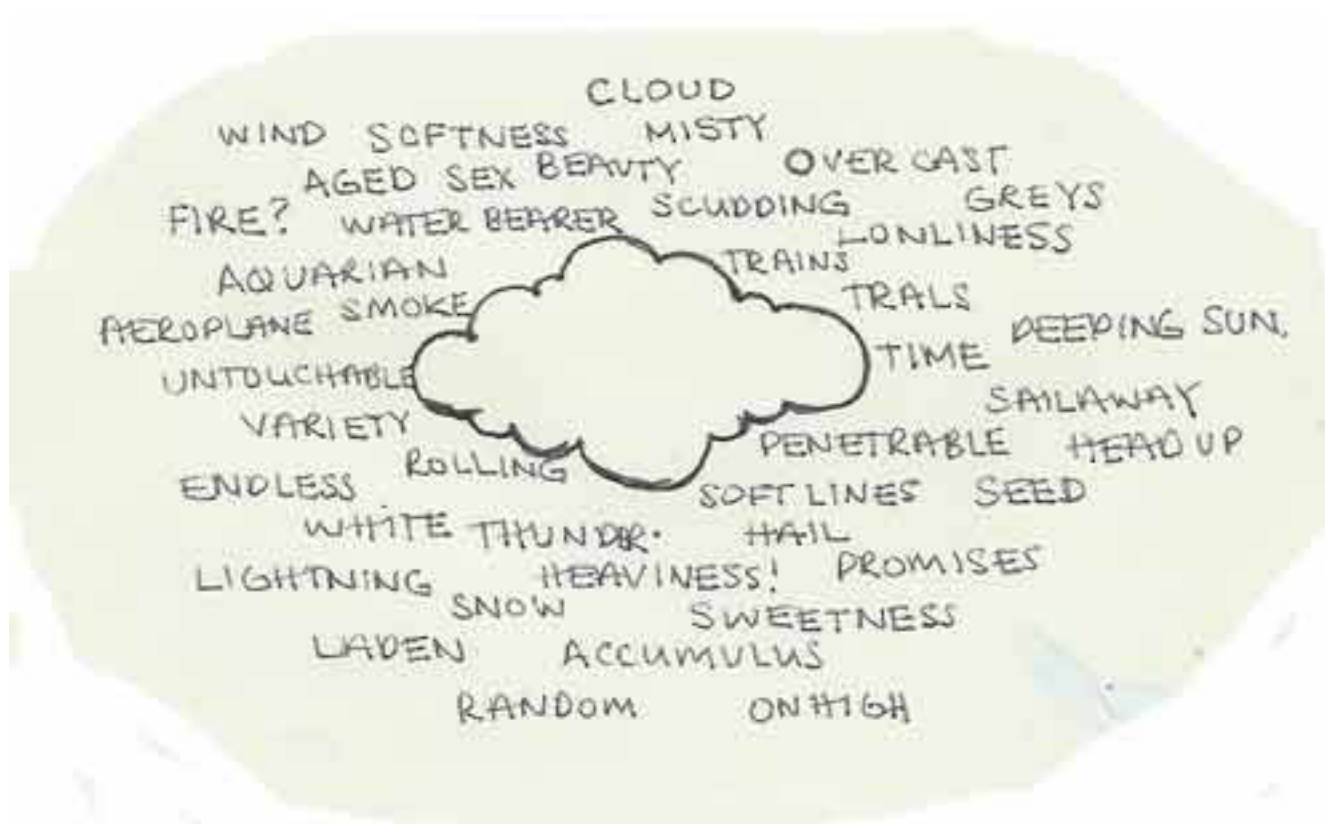 CLOUD
WIND SOFTNESS MISTY
AGED SEX BEAUTY OVER CAST
FIRE? WATER BEARER SCUDDING GREYS
LONLINESS
AQUARIAN TRAINS
AEROPLANE SMOKE TRALS
TIME DEEPING SUN.
UNTOUCHABLE
VARIETY SAILAWAY
ROLLING PENETRABLE HEAD UP
ENDLESS SOFT LINES SEED
WHITE THUNDER. HAIL
LIGHTNING HEAVINESS! PROMISES
SNOW SWEETNESS
LADEN ACCUMULUS
RANDOM ON HIGH